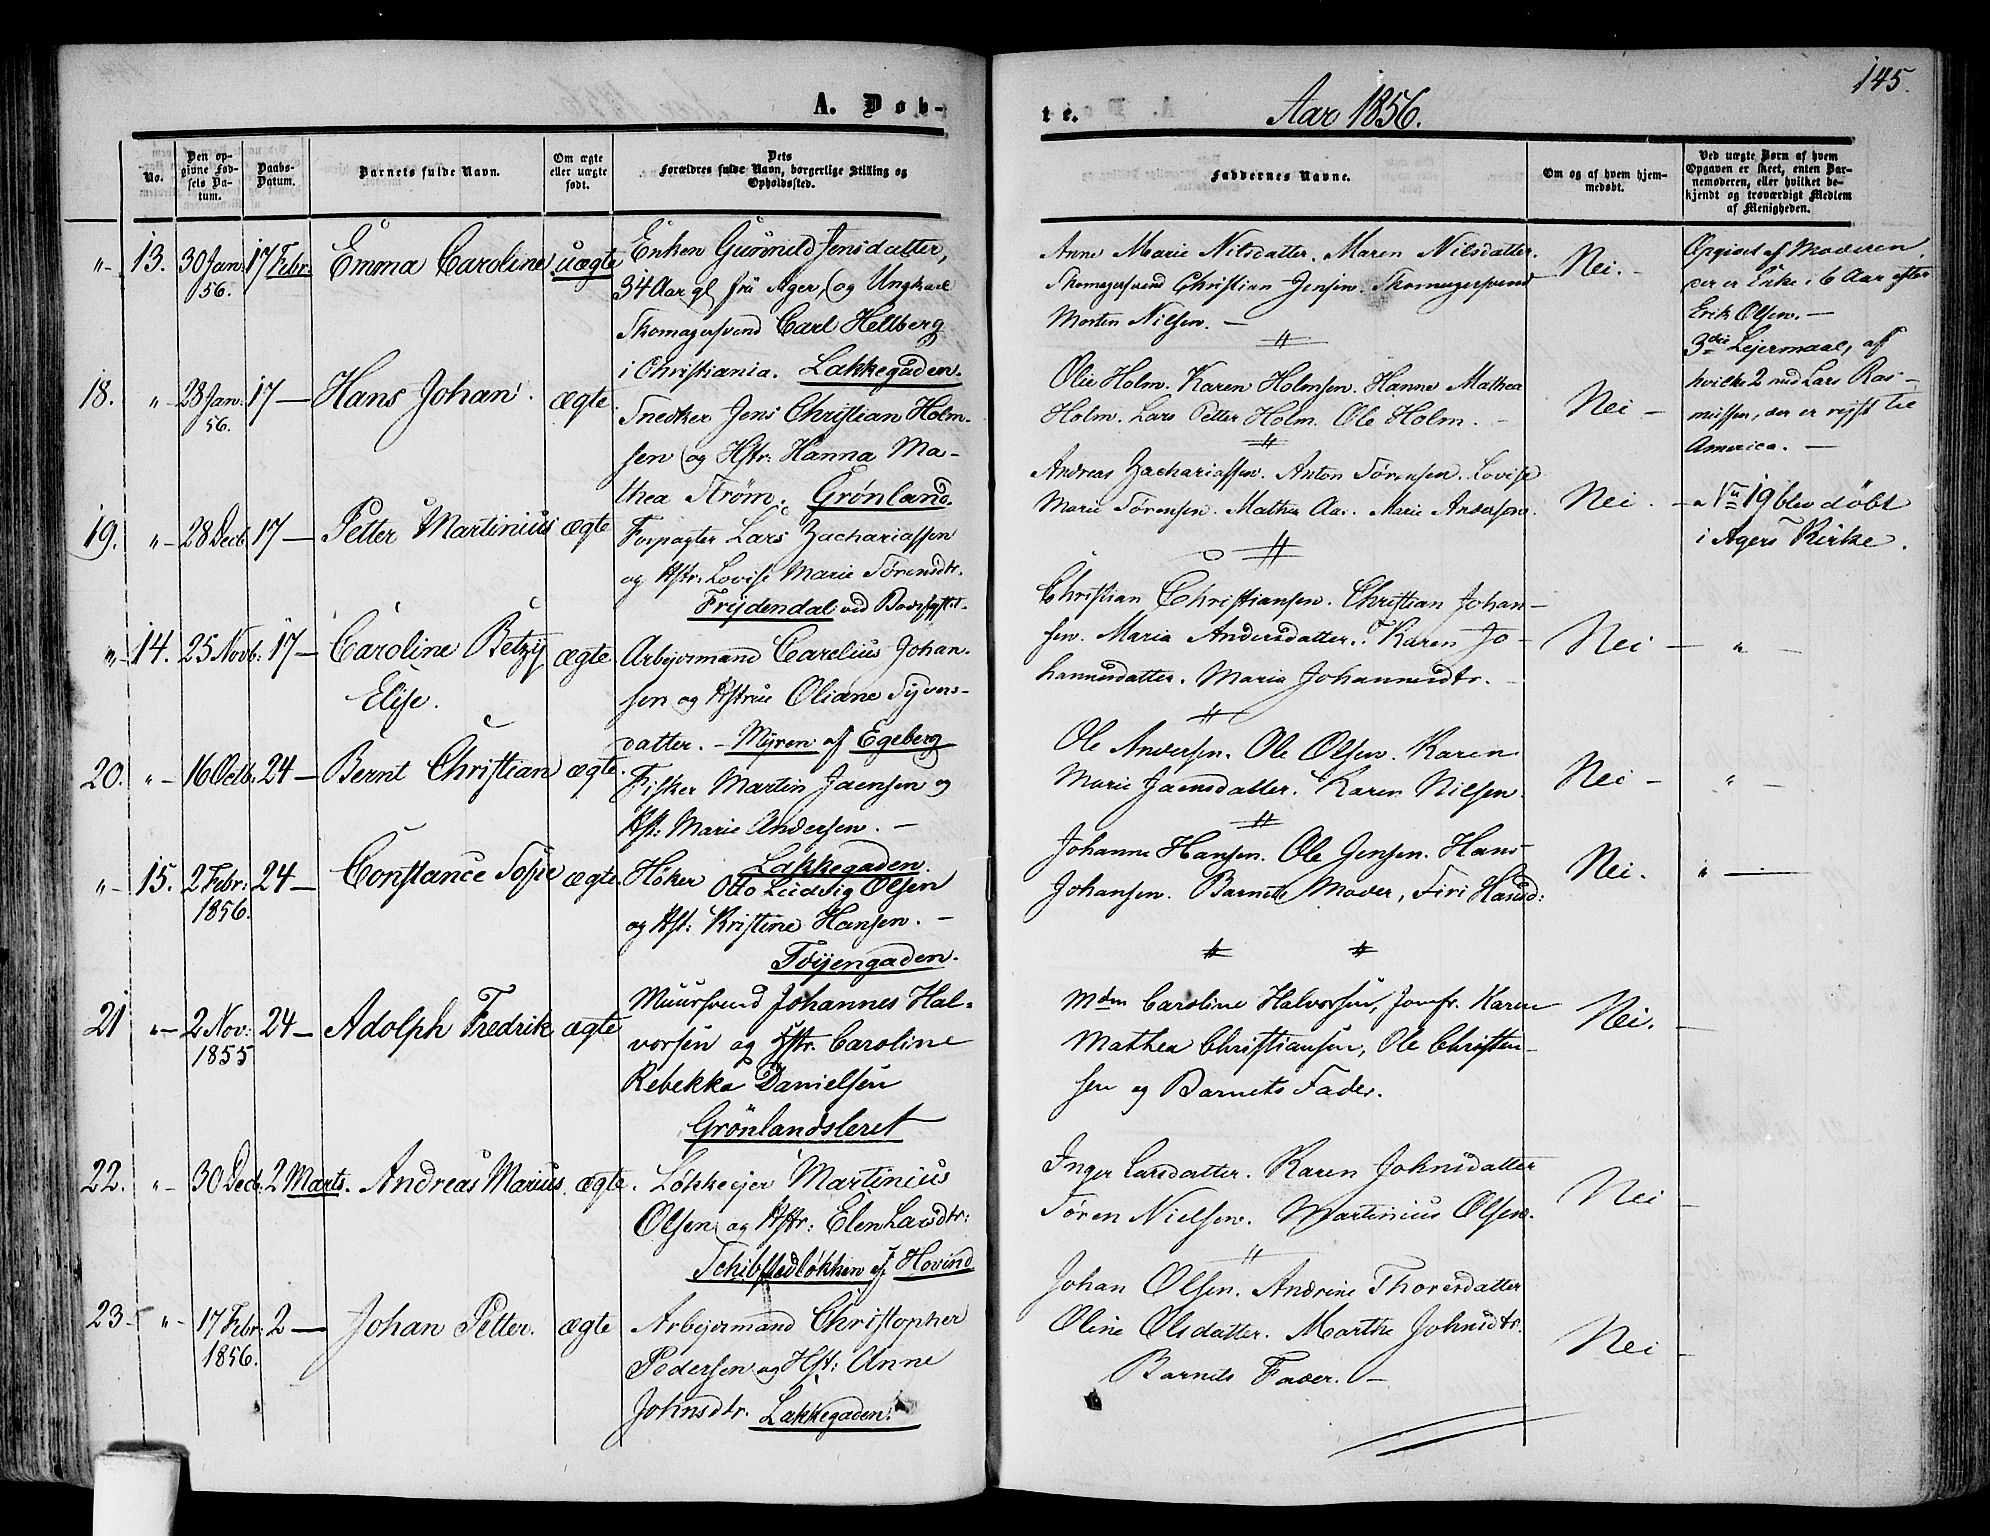 A. Døb-
No.
Den op-
givne Fød-
sels Da-
tum.
Daabs-
Datum.
Barnets fulde Navn.
Om ægte
eller uægte
født.
Dets
Forældres fulde Navn, borgerlige Stilling og
Opholdssted.
„- 13. 30 Jan: 56. 17 Febr. Emma Caroline uægte
Enken Gunnild Jensdatter,
34 Aar gl fra Ager, og Ungkarl
Skomagersvend Carl Hellberg
i Christiania. Lakkegaden.
18. „- 28 Jan: 56. 17 — Hans Johan. ægte.
Snedker Jens Christian Holm-
sen og Hstr: Hanna Ma-
thea Strøm. Grønland.
19. „- 28 Decb. 17 — Petter Martinius ægte
Forpagter Lars Zachariassen
og Hstr. Lovise Marie Sørensdtr.
Frydendal ved
„- 14. 25 Novb: 17 — Caroline Betzy
Elise. ægte
Arbejdsmand Carelius Johan-
sen og Hstrue Oliane Syvers-
datter. - Myren af Egeberg
20. „- 16 Octb: 24 — Bernt Christian ægte.
Fisker Martin Jaensen og
Hst: Marie Andersen. —
Lakkegaden.
„- 15. 2 Febr: 1856. 24 — Constance Sofie ægte.
Høker Otto Ludvig Olsen
og Hst: Kristine Hansen. —
Tøyengaden.
21 „- 2 Nov: 1855 24 — Adolph Fredrik ægte
Muursvend Johannes Hal-
vorsen og Hstr. Caroline
Rebekka Danielsen
Grønlandsleret
22. „- 30 Decb: 2 Marts. Andreas Marius. ægte.
Løkkeejer Martinius
Olsen og Hstr: Elen Larsdtr:
Schibstedløkken af Hovind
23 - „- 17 Febr: 1856. 2 — Johan Petter. ægte
Arbejdsmand Christopher
Pedersen og Hst: Anne
Johnsdtr. Lakkegaden.
te.
Aar 1856.
145.
Faddernes Navne.
Om og af hvem hjem-
medøbt.
Ved uægte Børn af hvem
Opgaven er skeet, enten Bar-
nemoderen, eller hvilket be-
kjendt og troværdigt Medlem
af Menigheden.
Anne Marie Nilsdatter. Maren Nilsdatter.
Skomagersvend Christian Jensen. Skomagersvend
Morten Nilsen. —
Nei. -
Opgivet af Moderen.
der er Enke i 6 Aar efter
Erik Olsen. —
3die Lejermaal, af
hvilke 2 med Lars Ras-
mussen, der er rejst til
America. —
Ole Holm. Karen Holmsen. Hanne Mathea
Holm. Lars Petter Holm. Ole Holm. -
Nei -
Andreas Zachariassen. Anton Sørensen. Lovise
Marie Sørensen. Mathea Aas. Marie Andersen.
Nei. -
„ No 19 blev døbt
i Agers Kirke.
Christian Christiansen. Christian Johan-
sen. Maria Andersdatter. Karen Jo-
hannesdatter. Maria Johannesdtr.
Nei — „ -
Ole Andersen. Ole Olsen. Karen
Marie Jaensdatter. Karen Nilsen.
Nei - „ -
Johanne Hansen. Ole Jensen. Hans
Johansen. Barnets Moder, Siri Hansd:
Nei. „ —
Mdm Caroline Halvorsen, Jomfr. Karen
Mathea Christiansen, Ole Christen-
sen og Barnets Fader.
Nei. -
Inger Larsdatter. Karen Johnsdatter
Søren Nielsen. Martinius Olsen.
Nei -
Johan Olsen. Andrine Thoresdatter
Oline Olsdatter. Marthe Johnsdtr.
Barnets Fader. —
Nei -